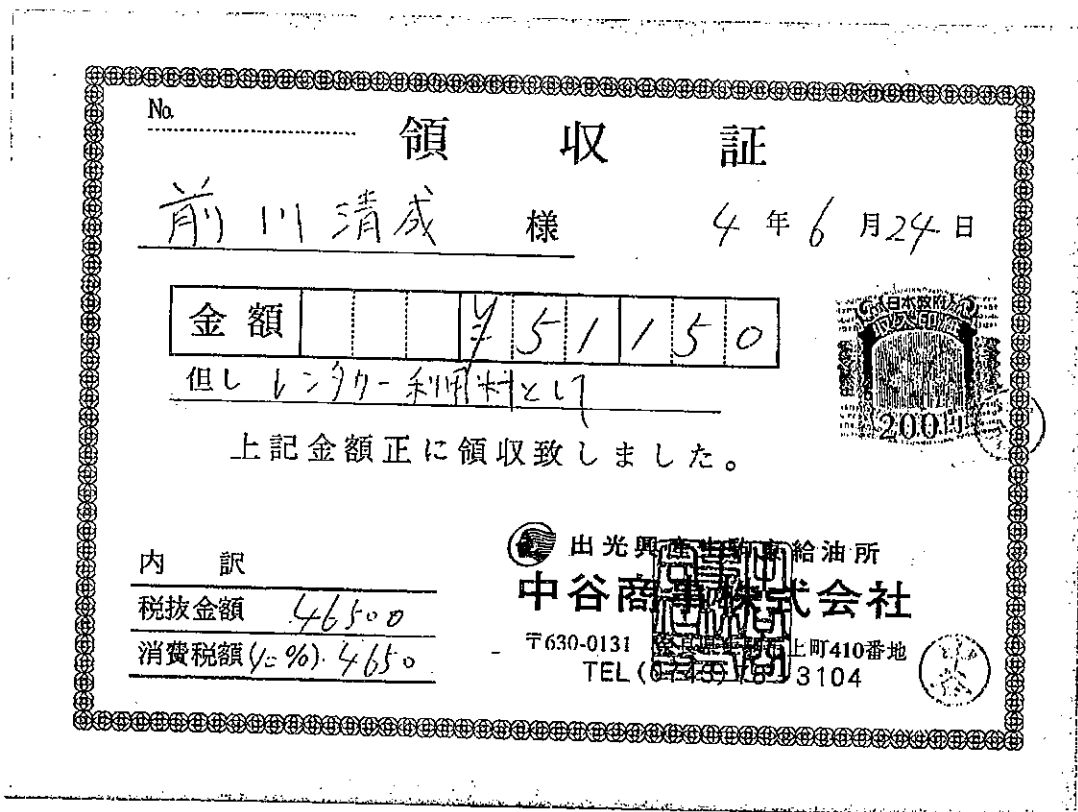 No.
領収証
前川清成 様
4年6月24日
金額 ¥51150
但し レンタカー利用料として
上記金額正に領収致しました。
日本政府
収入印紙
200円
内訳
税抜金額 46500
消費税額(10%) 4650
出光興産生駒 給油所
中谷商事株式会社
〒630-0131 奈良県生駒市上町410番地
TEL(0743)78-3104